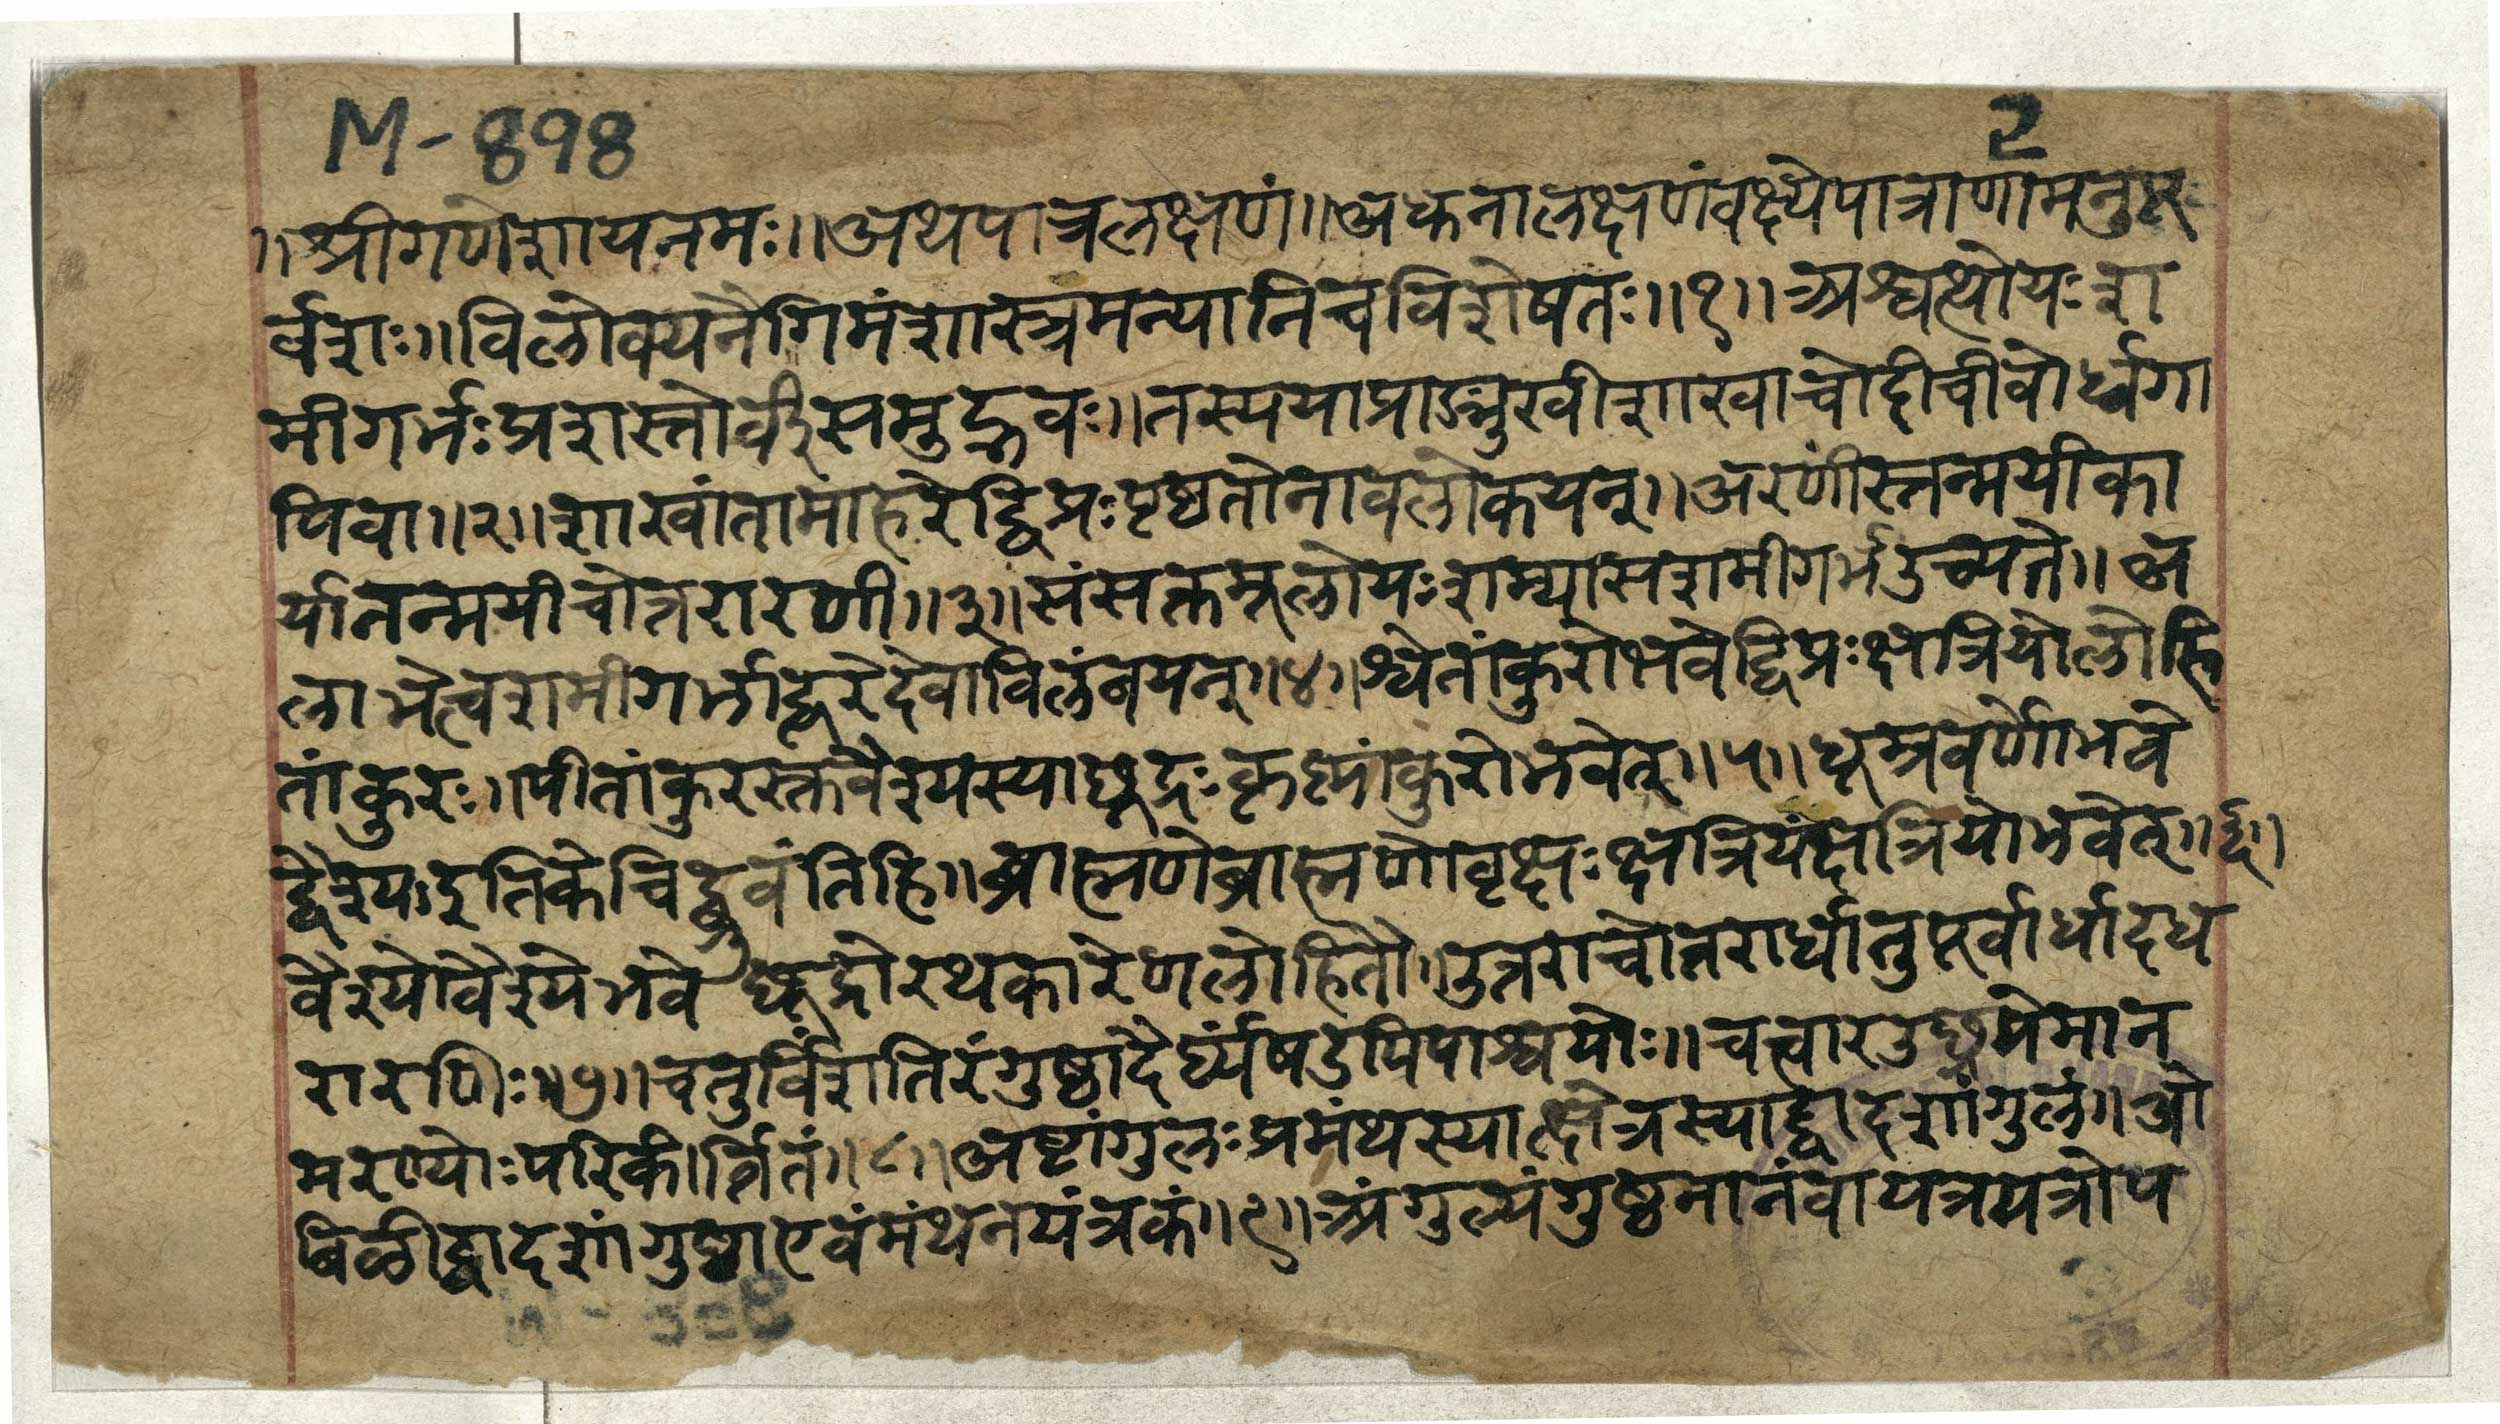 M-898
2
॥श्रीगणेशायनमः॥अथपात्रलक्षणं॥अधुनालक्षणंवक्ष्येपात्राणामनुपू
र्वशः॥विलोक्यनैगिमंशास्त्रमन्यानिचविशेषतः॥१॥अश्वत्थोयःश
मीगर्भःप्रशस्तोर्वीसमुद्भवः॥तस्ययाप्राङ्मुखीशाखाचोदीचीवोर्ध्वगा
पिवा॥२॥शाखांतामाहरेद्विप्रःपृष्ठतोनावलोकयन्॥अरणीस्तन्मयीका
र्यातन्मयीचोत्तरारणी॥३॥संसक्तमूलोयःशम्यासशमीगर्भउच्यते॥अ
लाभेत्वशमीगर्भाद्धरेदेवाविलंबयन्॥४॥श्वेतांकुरोभवेद्विप्रःक्षत्रियोलोहि
तांकुरः॥पीतांकुरस्तुवैश्यस्याछूद्रःकृष्णांकुरोभवेत्॥५॥धूम्रवर्णोभवे
द्वैश्यइतिकेचिद्ब्रुवंतिहि॥ब्राह्मणेब्राह्मणोवृक्षःक्षत्रियंक्षत्रियोभवेत्॥६॥
वैश्योवैश्येभवेछूद्रोरथकारेणलोहितौ॥उत्तराचोत्तरार्धात्तुपूर्वार्धादध
रारणिः॥७॥चतुर्विंशतिरंगुष्ठादैर्घ्यंषडपिपार्श्वयोः॥चत्वारउछ्रयेमान
मरण्योःपरिकीर्त्तितं॥८॥अष्टांगुलःप्रमंथस्याच्चात्रस्याद्द्वादशांगुलं॥ओ
विळीद्वादशांगुष्ठाएवंमंथनयंत्रकं॥९॥अंगुल्यंगुष्ठमानंवायत्रयत्रोप